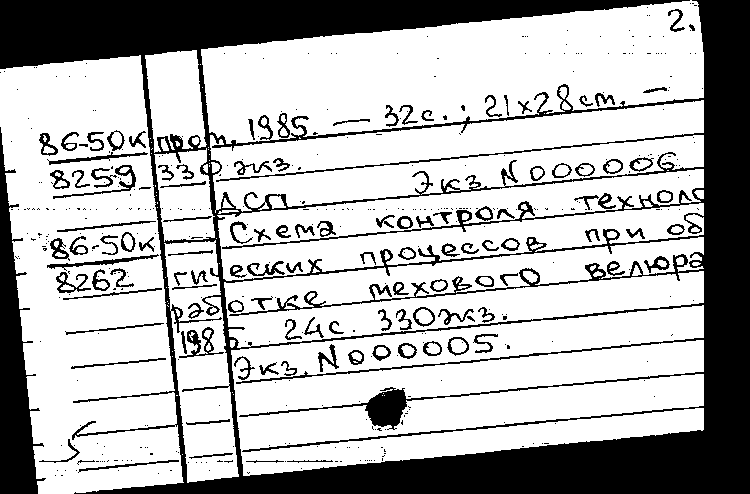 2.
86-50к пром, 1985. — 32с.; 21х28см. —
8259 330 экз.
ДСП. Экз. N000006
86-50к — Схема контроля техноло
8262 гических процессов при об
работке мехового велюра
1985. 24с. 330экз.
Экз. N000005.